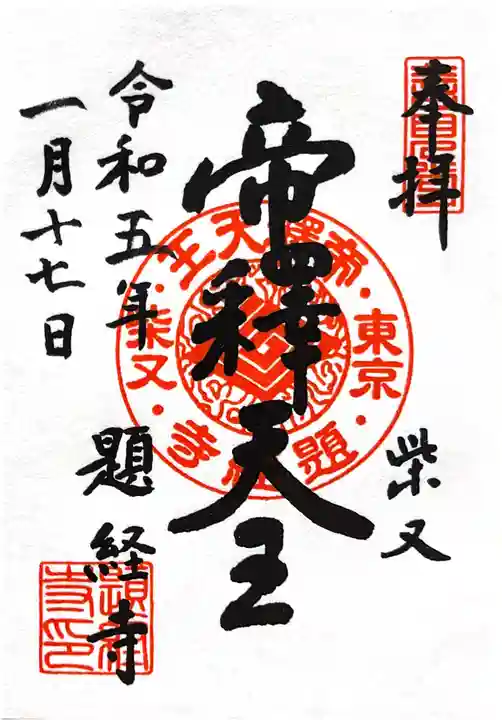 奉拝
柴又
帝釋天王
令和五年
一月十七日
題経寺
帝釋天王
東京
柴又
題経寺